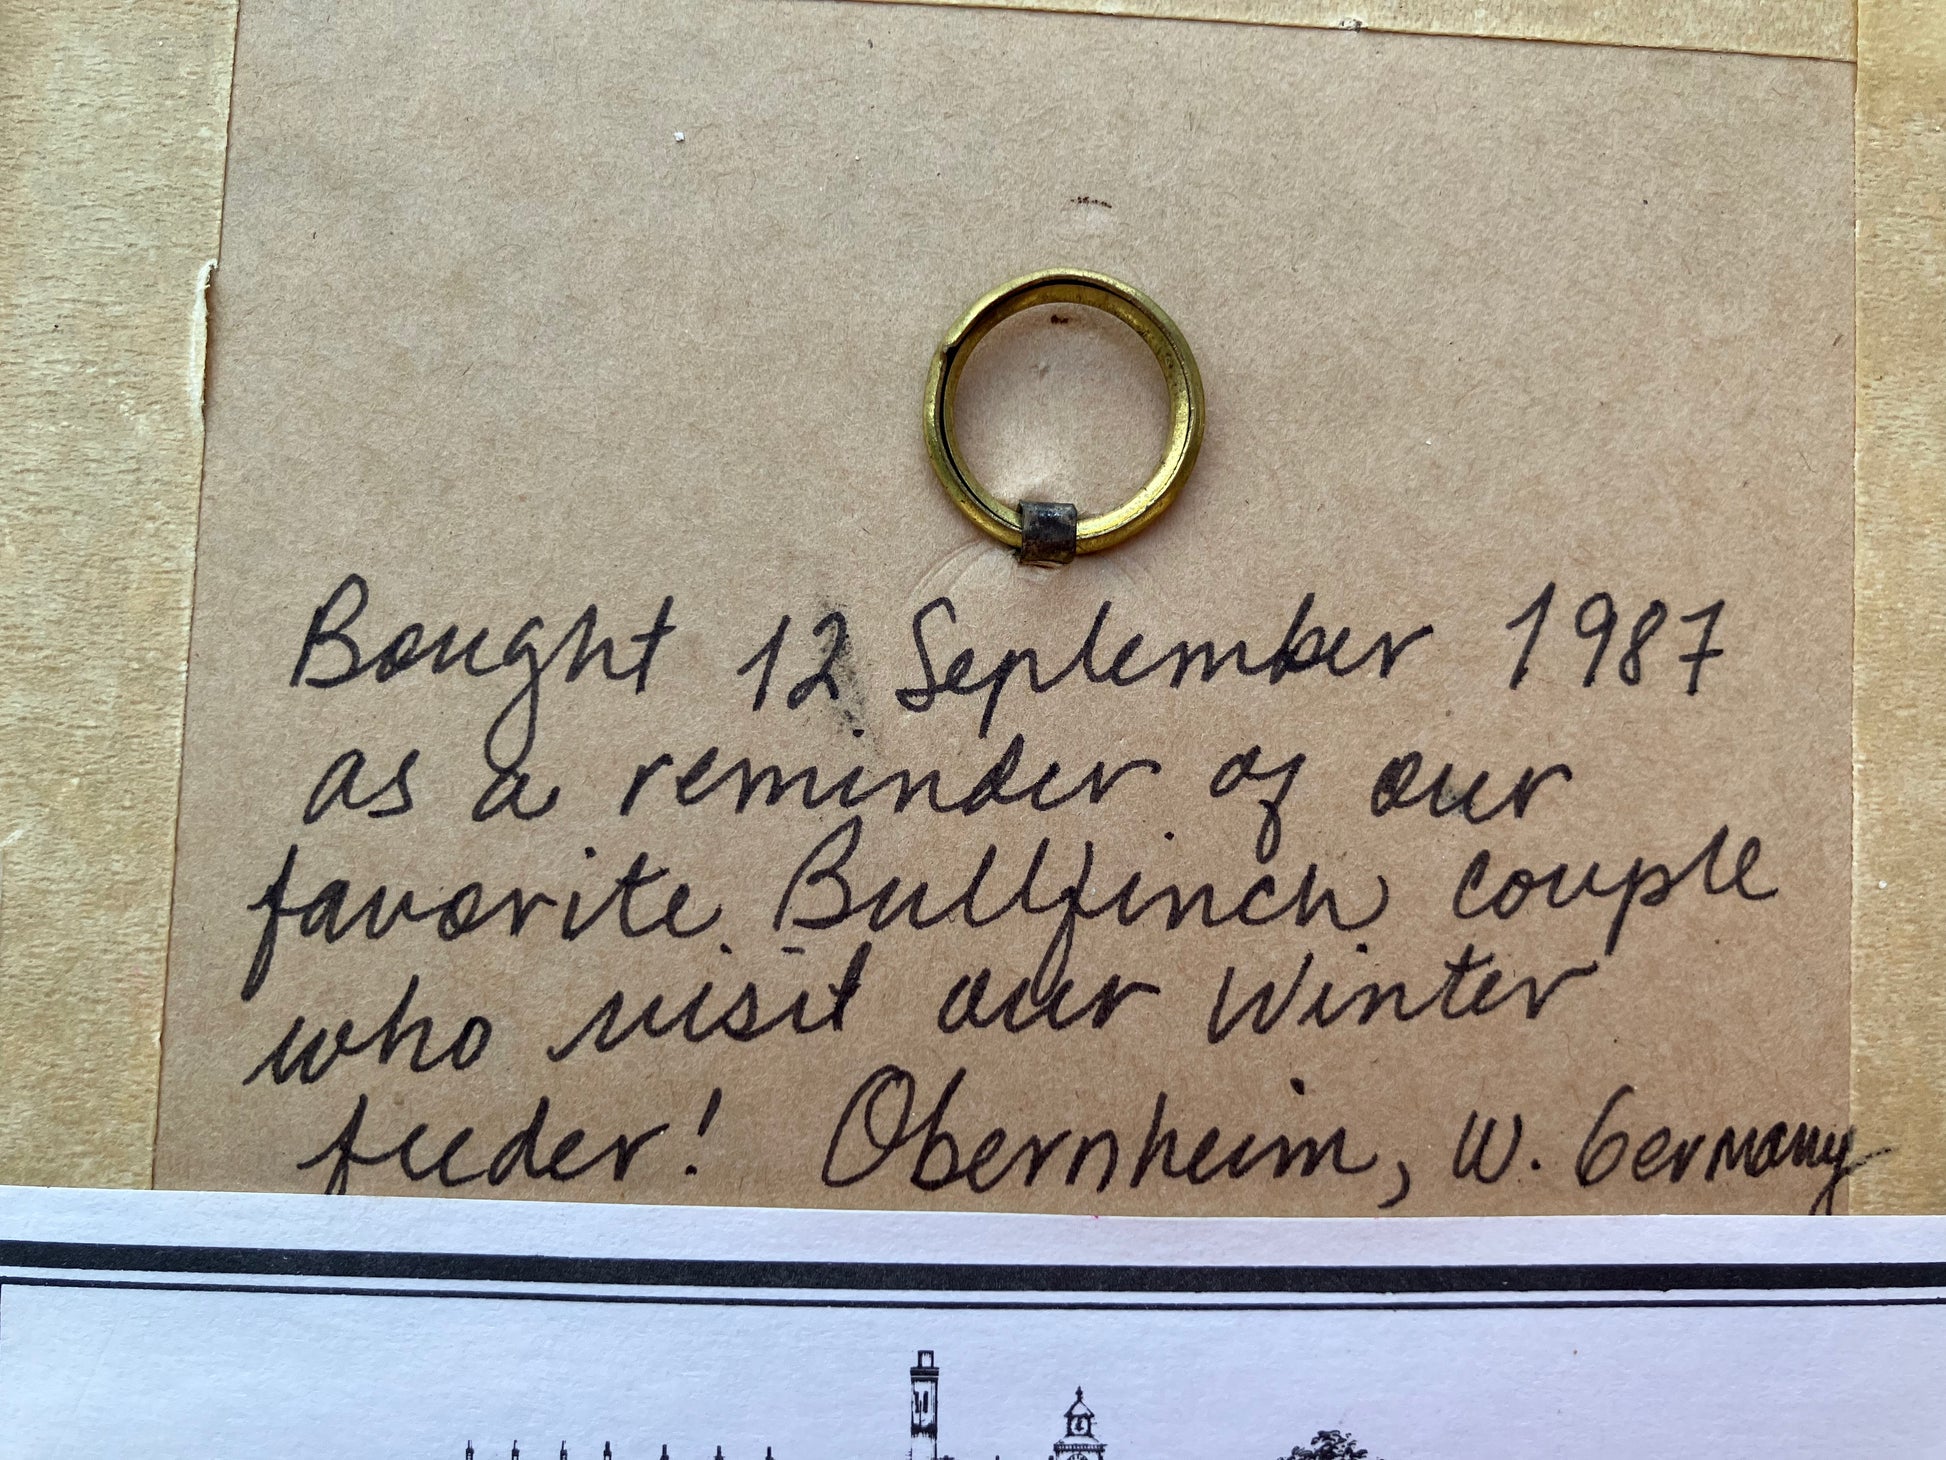 Bought 12 September 1987
as a reminder of our
favorite Bullfinch couple
who visit our Winter
feeder! Obernheim, W. Germany